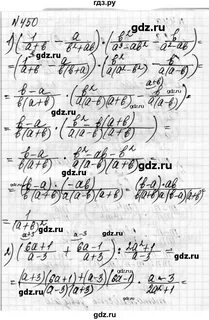 гдз.ру
№ 450
1) (1/(a+b) - a/(b²+ab)) · (b²/(a³-ab²) - b/(a²-ab)) =
= (1/(a+b) - a/(b(a+b))) · (b²/(a(a²-b²)) - b/(a(a-b))) =
= (b-a)/(b(a+b)) · (b²/(a(a-b)(a+b)) - b/(a(a-b))) =
= (b-a)/(b(a+b)) · (b²-b(a+b))/(a(a-b)(a+b)) =
= (b-a)/(b(a+b)) · (b²-ab-b²)/(a(a-b)(a+b)) =
= ((b-a)·(-ab))/(b(a+b)a(a-b)(a+b)) = ((b-a)·ab)/(b(a+b)a(b-a)(a+b)) =
= 1/(a+b)²
2) ((6a+1)/(a-3) + (6a-1)/(a+3)) · (2a²+1)/(a-3) =
= ((a+3)(6a+1)+(a-3)(6a-1))/((a-3)(a+3)) · (a-3)/(2a²+1) =